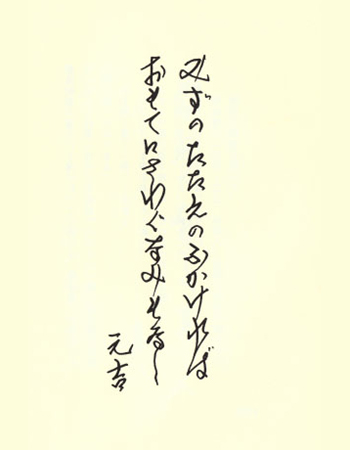 みずのたたえのふかければ
おもてにさわぐなみもなし
元吉